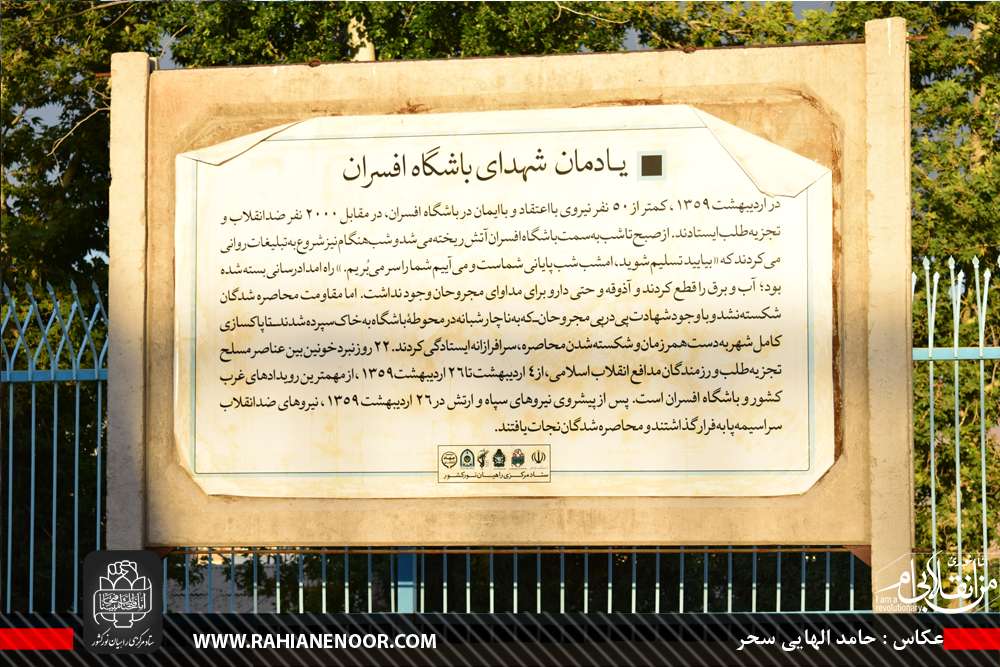 یادمان شهدای باشگاه افسران
در اردیبهشت ۱۳۵۹، کمتر از ۵۰ نفر نیروی بااعتقاد و باایمان در باشگاه افسران، در مقابل ۲۰۰۰ نفر ضدانقلاب و
تجزیه‌طلب ایستادند. از صبح تا شب به سمت باشگاه افسران آتش ریخته می‌شد و شب هنگام نیز شروع به تبلیغات روانی
می‌کردند که «بیایید تسلیم شوید، امشب شب پایانی شماست و می‌آییم شما را سر می‌بُریم.» راه امدادرسانی بسته شده
بود؛ آب و برق را قطع کردند و آذوقه و حتی دارو برای مداوای مجروحان وجود نداشت. اما مقاومت محاصره شدگان
شکسته نشد و با وجود شهادت پی در پی مجروحان ـ که به ناچار شبانه در محوطهٔ باشگاه به خاک سپرده شدند ـ تا پاکسازی
کامل شهر به دست همرزمان و شکسته شدن محاصره، سرافرازانه ایستادگی کردند. ۲۲ روز نبرد خونین بین عناصر مسلح
تجزیه طلب و رزمندگان مدافع انقلاب اسلامی، از ٤ اردیبهشت تا ۲٦ اردیبهشت ۱۳۵۹، از مهمترین رویدادهای غرب
کشور و باشگاه افسران است. پس از پیشروی نیروهای سپاه و ارتش در ۲٦ اردیبهشت ۱۳۵۹، نیروهای ضدانقلاب
سراسیمه پا به فرار گذاشتند و محاصره شدگان نجات یافتند.
ستاد مرکزی راهیان نور کشور
ستاد مرکزی راهیان نور کشور
من انقلابی‌ام
I am a
revolutionary
WWW.RAHIANENOOR.COM
عکاس : حامد الهایی سحر